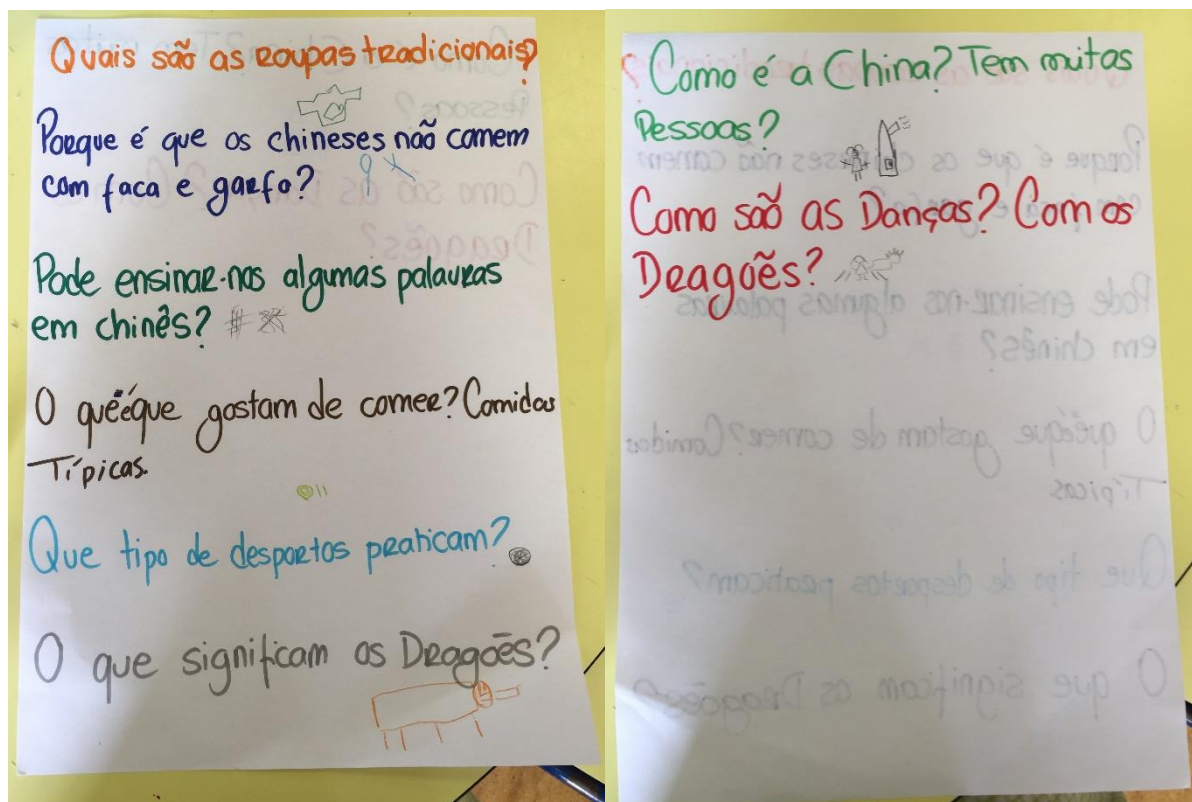 Quais são as roupas tradicionais?
Porque é que os chineses não comem
com faca e garfo?
Pode ensinar-nos algumas palavras
em chinês?
O quëéque gostam de comer? Comidas
Típicas.
Que tipo de desportos praticam?
O que significam os Dragões?
Como é a China? Tem muitas
Pessoas?
Como são as Danças? Com os
Dragões?